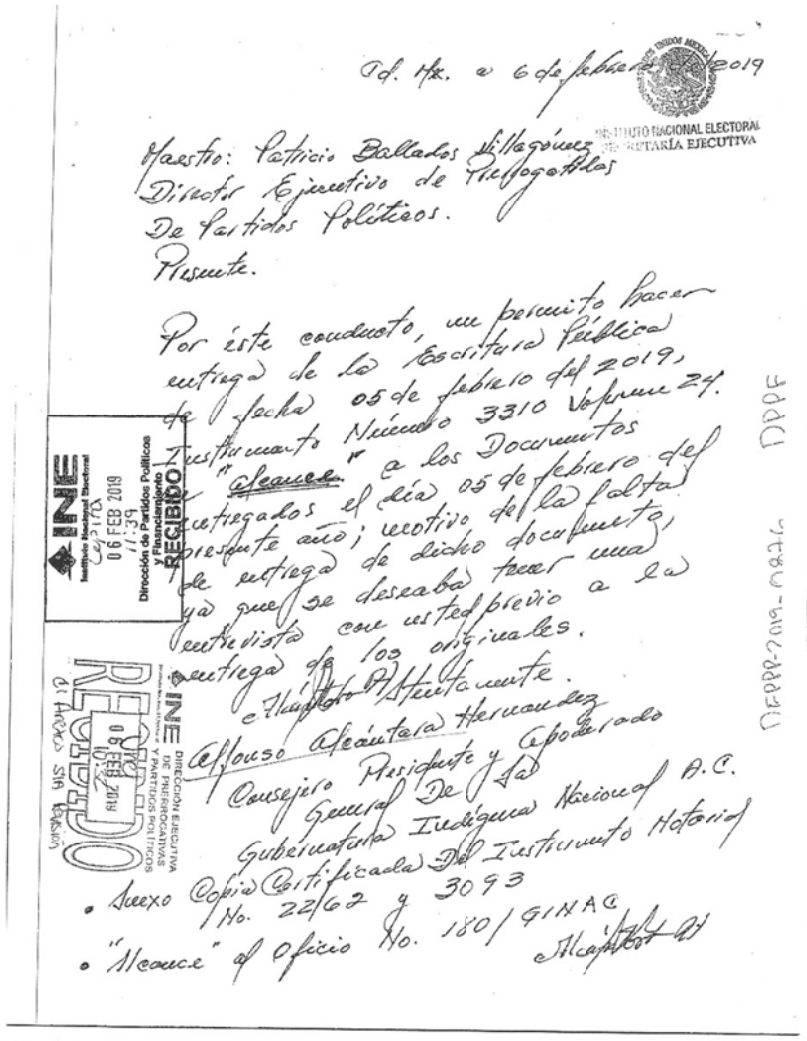 Cd. Mx. a 6 de febrero del 2019
UNIDOS MEXICA
INSTITUTO NACIONAL ELECTORAL
SECRETARÍA EJECUTIVA
Maestro: Patricio Ballados Villagómez
Director Ejecutivo de Prerrogativas
De Partidos Políticos.
Presente.
Por éste conducto, me permito hacer
entrega de la Escritura Pública
de fecha 05 de febrero del 2019,
Instrumento Número 3310 Volumen 24.
"alcance" a los Documentos
entregados el día 05 de febrero del
presente año; motivo de la falta
de entrega de dicho documento,
ya que se deseaba tener una
entrevista con usted previo a la
entrega de los originales.
Atentamente.
Alfonso Alcántara Hernandez
Consejero Presidente y Apoderado
General De La
Gubernatura Indígena Nacional A.C.
• Anexo Copia Certificada Del Instrumento Notarial
No. 22/62 y 3093
• "Alcance" al Oficio No. 180/GINAC
INE
Instituto Nacional Electoral
06 FEB 2019
17:39
Dirección de Partidos Políticos
y Financiamiento
RECIBIDO
RECIBIDO
06 FEB 2019
INE
DIRECCIÓN EJECUTIVA
DE PRERROGATIVAS
Y PARTIDOS POLÍTICOS
DPPF
DEPPP-2019-0876